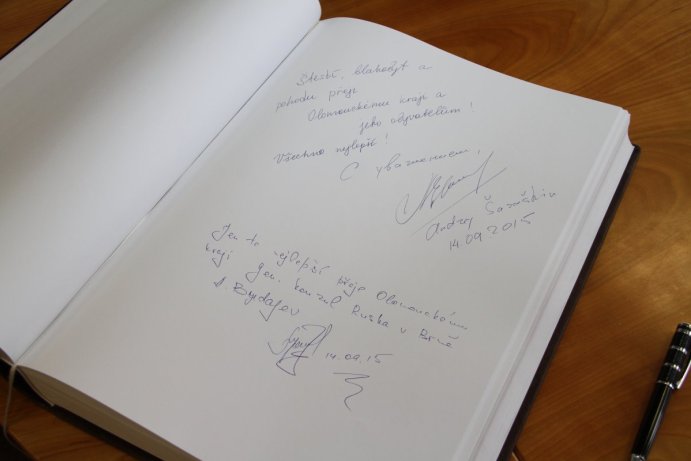 Štěstí, blahobyt a
pohodu přeje
Olomouckému kraji a
jeho obyvatelům!
Všechno nejlepší!
С уважением,
Andrej Šaraškin
14.09.2015
Jen to nejlepší přeje Olomouckému
kraji gen. konzul Ruska v Brně
A. Budajev
14.09.15